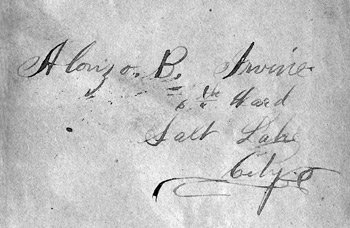 Alonzo. B. Irvine.
6th Ward
Salt Lake
City